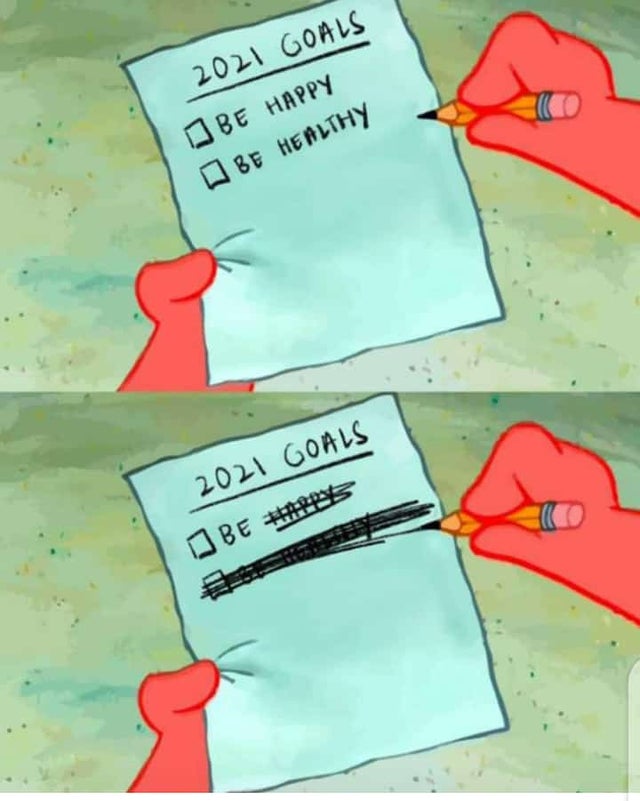 2021 GOALS
BE HAPPY
BE HEALTHY
2021 GOALS
BE HAPPY